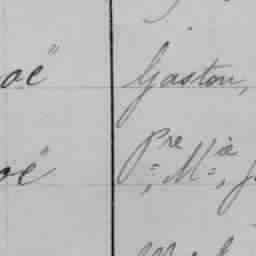 oé" Gaston,
oé" Pre, Mie, J